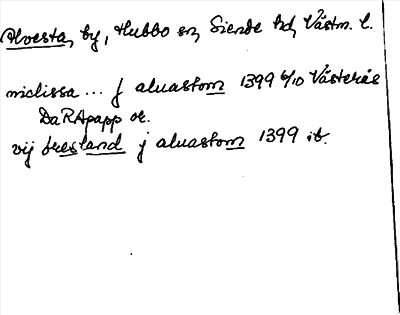 Alvesta, by, Hubbo sn, Siende hd, Västm. l.
niclissa ... j aluastom 1399 6/10 Västerås
DaRApapp or.
vij øresland j aluastom 1399 ib.